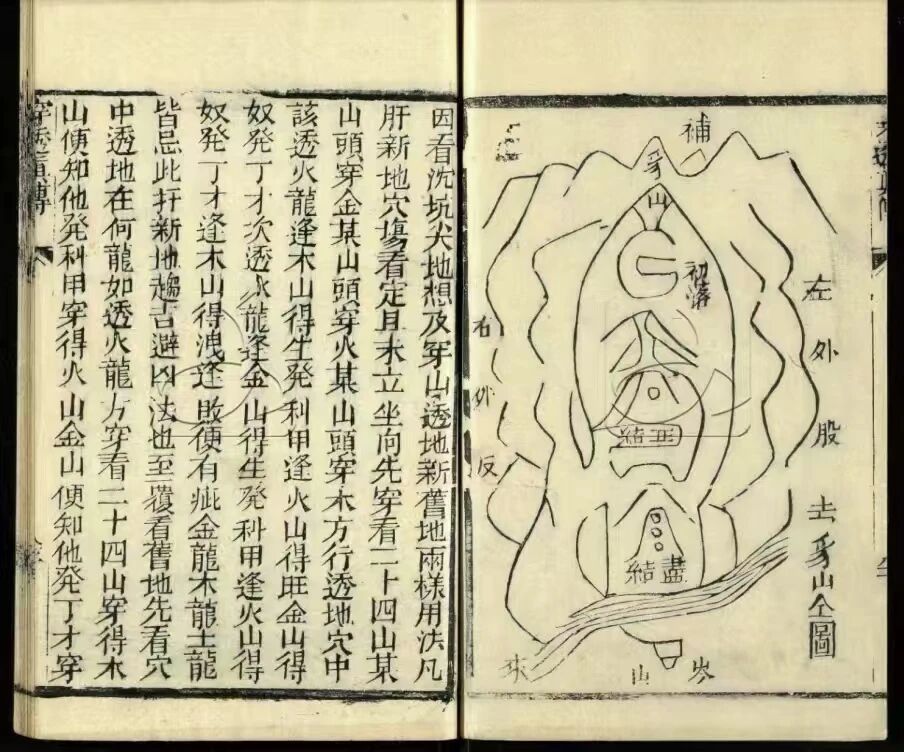 補
山
初落
左外股
右外
山仝圖
結
盡結
山
因看沈坑尖地想及穿山透地新舊地兩樣用法凡
肝新地穴塲看定且未立坐向先穿看二十四山某
山頭穿金某山頭穿火某山頭穿木方行透地穴中
該透火龍逢木山得生發利甲逢火山得旺金山得
奴發丁才次透水龍逢金山得生發科甲逢火山得
奴發丁才逢木山得洩逢敗便有疵金龍木龍土龍
皆忌此扞新地趨吉避凶法也至覆看舊地先看穴
中透地在何龍如透火龍方穿看二十四山穿得木
山便知他発科甲穿得火山金山便知他発丁才穿
穿透真傳